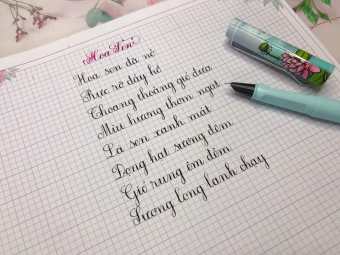 Hoa Sen
Hoa sen đã nở
Rực rỡ đầy hồ
Thoang thoảng gió đưa
Mùi hương thơm ngát
Lá sen xanh mát
Đọng hạt sương đêm
Gió rung êm đềm
Sương long lanh chạy